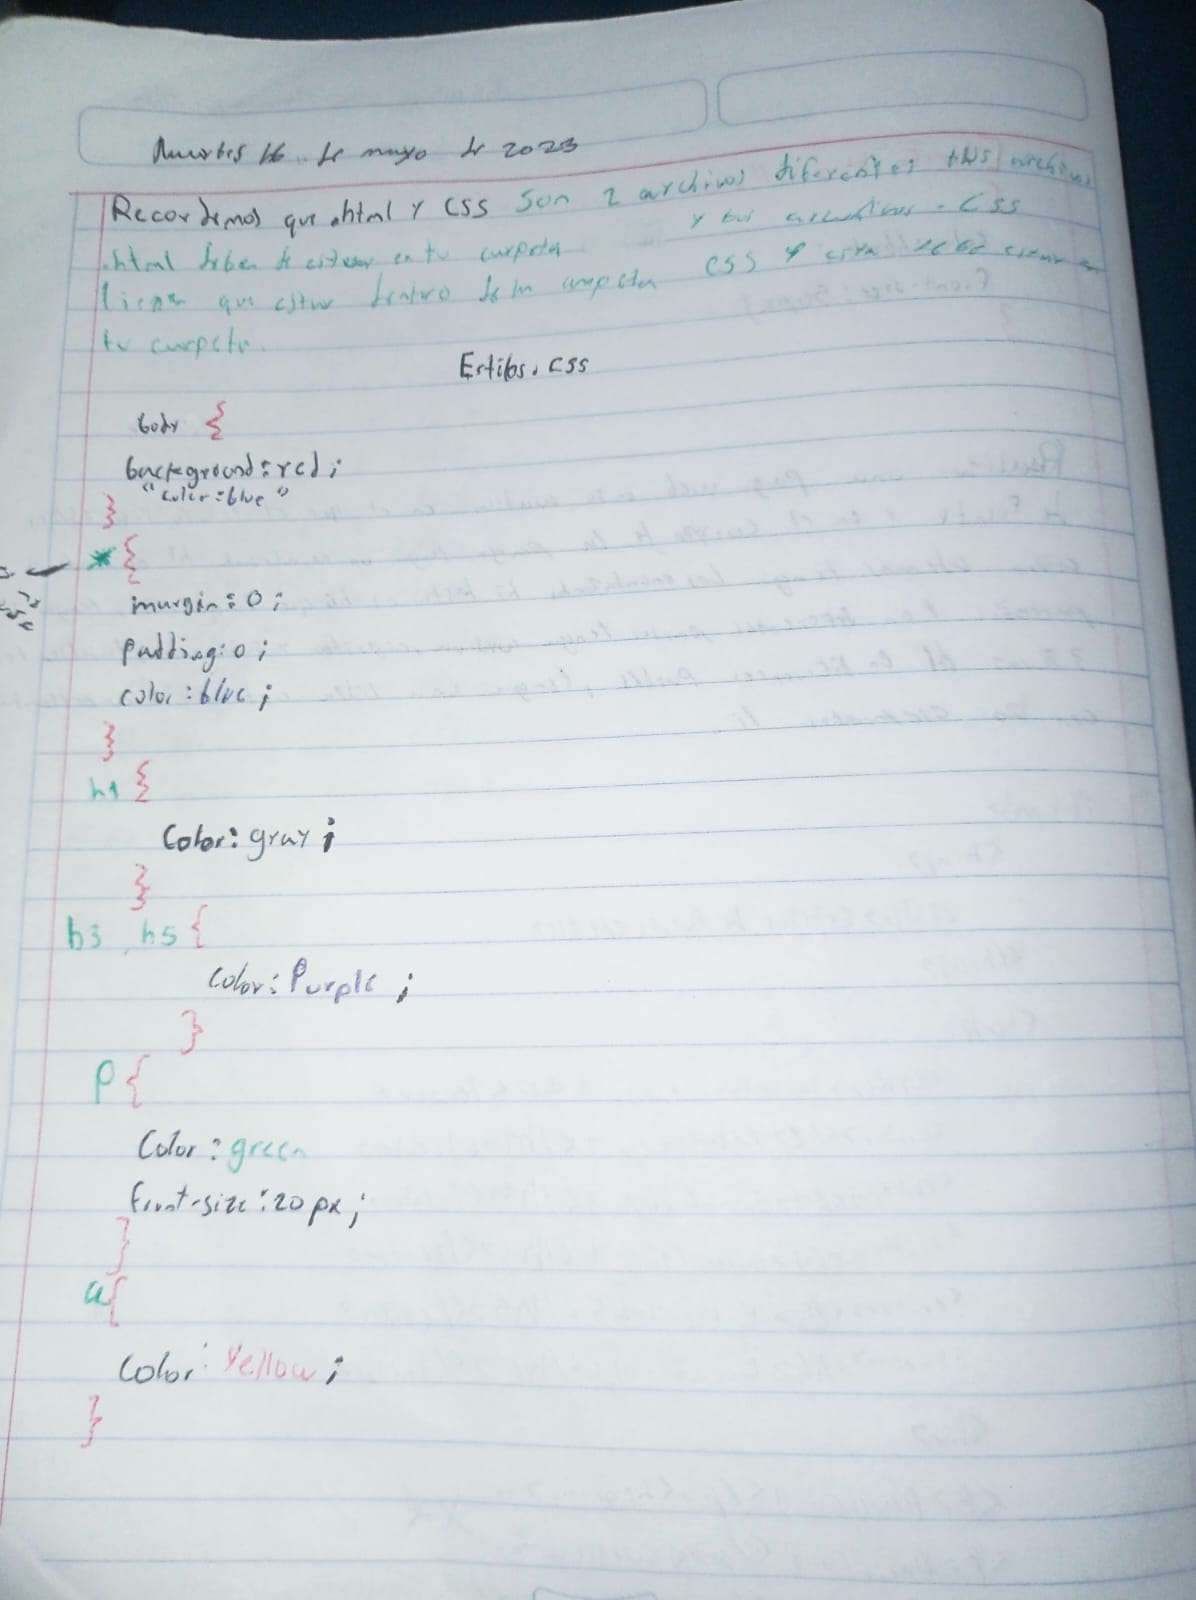 Martes 16 de mayo de 2023
Recordemos que .html y CSS son 2 archivos diferentes tus archivos
.html deben de estar en tu carpeta y tus archivos .CSS
tienen que estar dentro de la carpeta CSS y esta debe estar en
tu carpeta.
Estilos.CSS
body {
background:red;
"color:blue"
}
*{
margin:0;
padding:0;
color:blue;
}
h1 {
Color:gray;
}
h3, h5 {
Color:Purple;
}
P{
Color:green
front-size:20px;
}
a{
Color:Yellow;
}